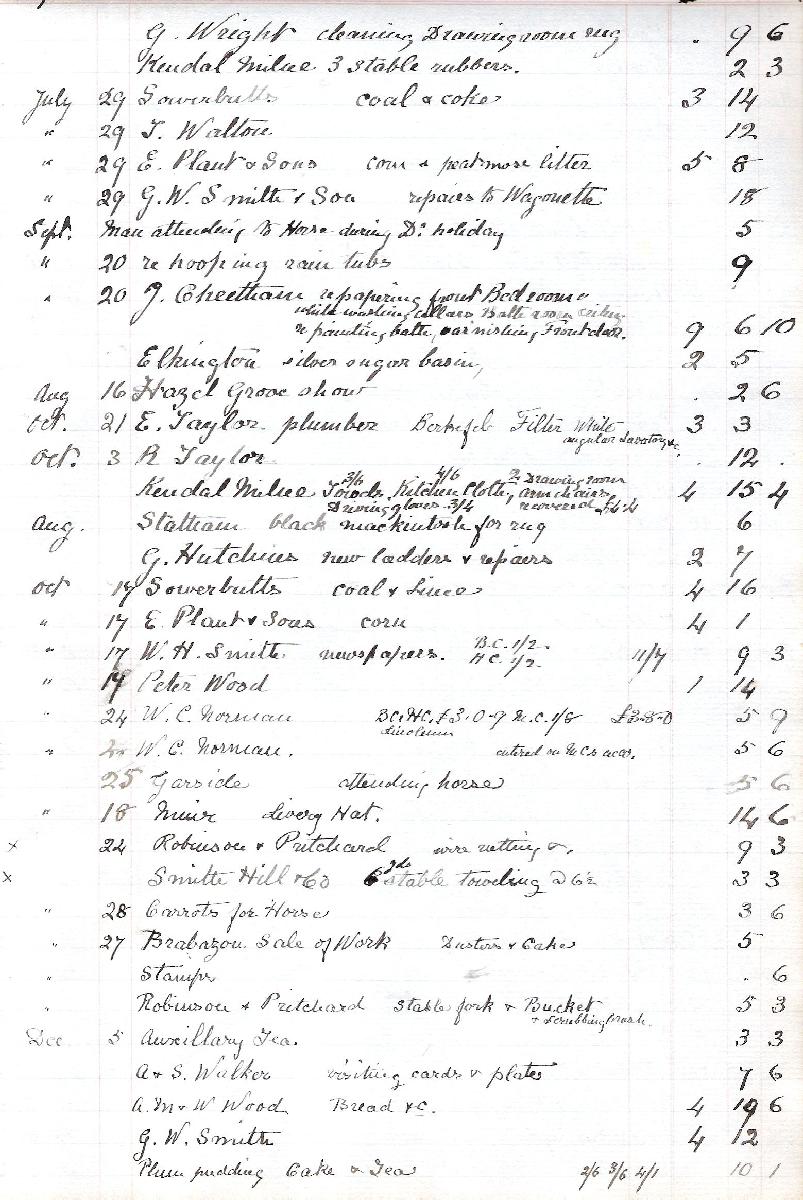 G. Wright cleaning Drawing room rug . 9 6
Kendal Milne 3 stable rubbers. 2 3
July 29 Sowerbutts coal & coke 3 14
" 29 T. Walton 12
" 29 E. Plant & Sons corn & peat moss litter 5 8
" 29 G. W. Smith & Son repairs to Wagonette 18
Sept. Man attending to Horse during D's holiday 5
" 20 re hooping rain tubs 9
" 20 J. Cheetham repapering front Bedroom
white washing cellars Bath room ceiling
repainting bath, varnishing Front door. 9 6 10
Elkington silver sugar basin, 2 5
Aug 16 Hazel Grove show . 2 6
Oct. 21 E. Taylor plumber Berkefeld Filter White 3 3
angular Lavatory &c.
Oct. 3 R Taylor . 12 .
3/6 4/6 2 Drawing room
Kendal Milne Towels, Kitchen Cloths, arm chairs 4 15 4
Driving gloves 3/4 recovered £4.4
Aug. Statham black mackintosh for rug 6
G. Hutchins new ladders & repairs 2 7
Oct 17 Sowerbutts coal & Lime 4 16
" 17 E. Plant & Sons corn 4 1
" 17 W. H. Smith newspapers. B.C. 1/2. H.C. 1/2. 11/7 9 3
" 17 Peter Wood 1 14
" 24 W. C. Norman B.C. H.C. £3-0-9 M.C. 1/8 £3-8-0 5 9
Linoleum
" W. C. Norman. entered on M.C.s acct. 5 6
25 Garside attending horse 5 6
" 18 Muir Livery Hat. 14 6
x 24 Robinson & Pritchard wire netting &. 9 3
x Smith Hill & Co 6 yds stable toweling @ 6½ 3 3
" 28 Carrots for Horse 3 6
" 27 Brabazon Sale of Work Dusters & Cake 5
" Stamps . 6
" Robinson & Pritchard stable fork & Bucket 5 3
& Scrubbing brush.
Dec 5 Auxillary Tea. 3 3
A & S. Walker visiting cards & plate 7 6
A. M & W Wood Bread &c. 4 19 6
G. W. Smith 4 12
Plum pudding Cake & Tea 2/6 3/6 4/1 10 1